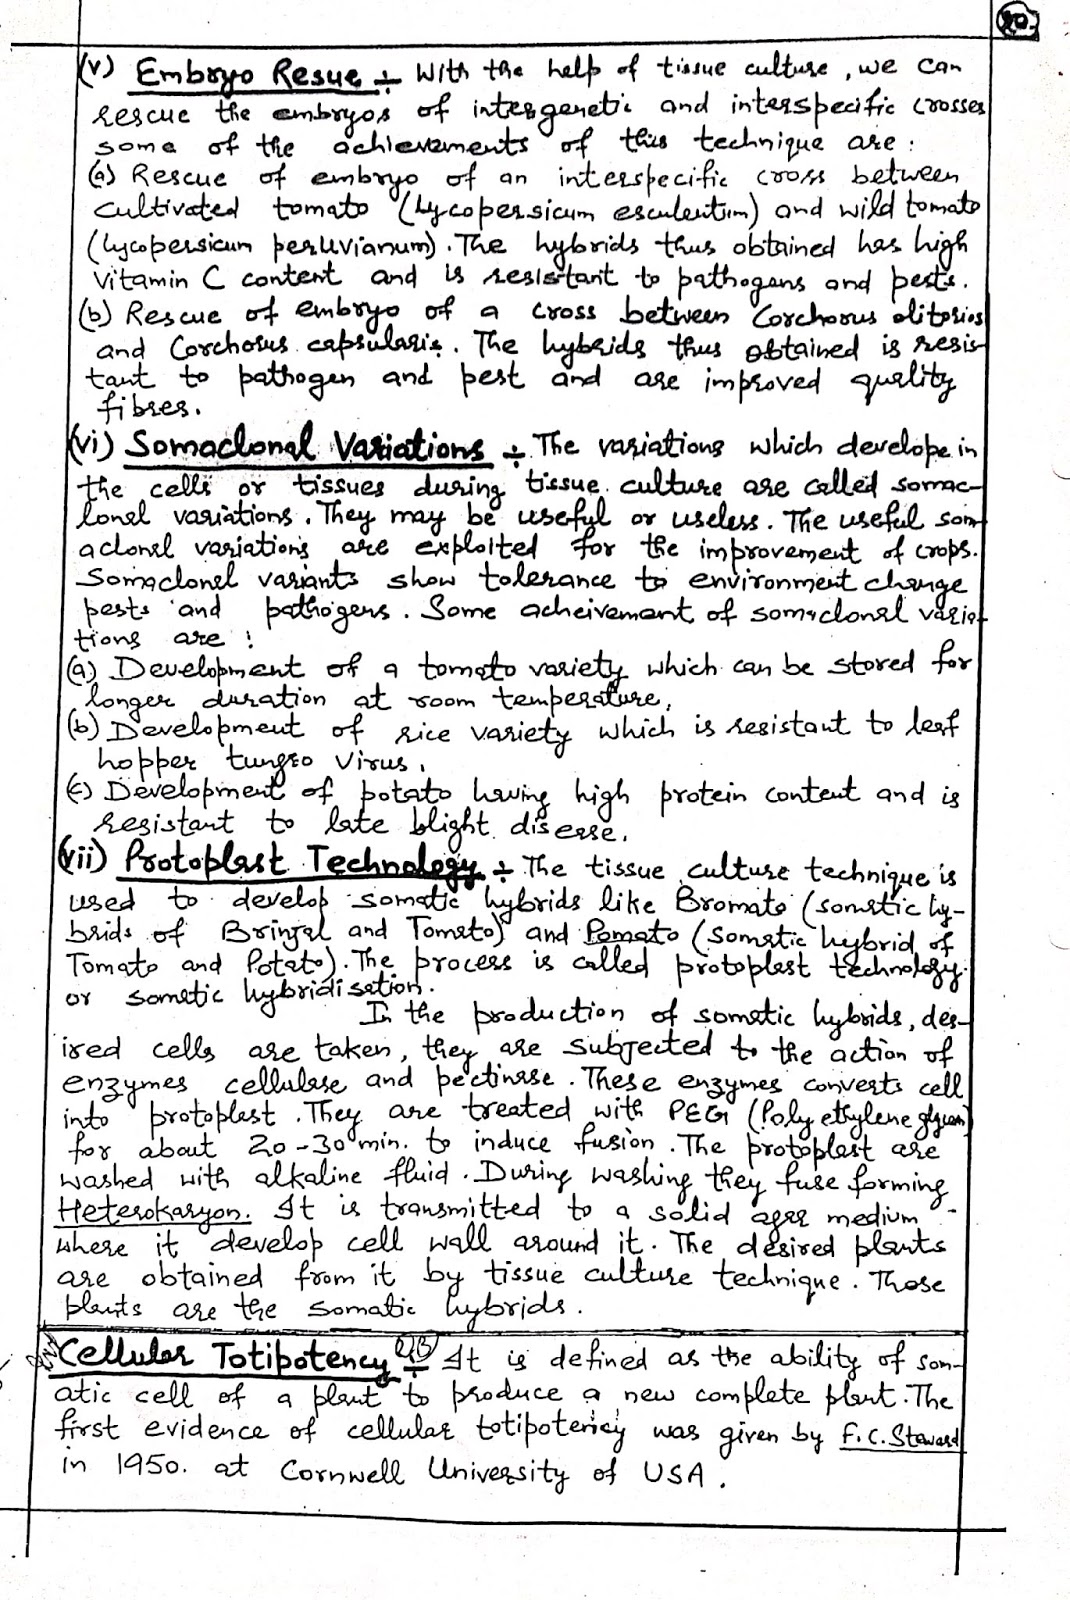 20.
(v) Embryo Resue ÷ With the help of tissue culture, we can
rescue the embryos of intergenetic and interspecific crosses
some of the achievements of this technique are :
(a) Rescue of embryo of an interspecific cross between
cultivated tomato (Lycopersicum esculentum) and wild tomato
(Lycopersicum peruvianum). The hybrids thus obtained has high
vitamin C content and is resistant to pathogens and pests.
(b) Rescue of embryo of a cross between Corchorus olitorius
and Corchorus capsularis. The hybrids thus obtained is resis-
tant to pathogen and pest and are improved quality
fibres.
(vi) Somaclonal Variations ÷ The variations which develope in
the cells or tissues during tissue culture are called somac-
lonal variations. They may be useful or useless. The useful som-
aclonal variations are exploited for the improvement of crops.
Somaclonal variants show tolerance to environment change
pests and pathogens. Some acheivement of somaclonal varia-
tions are :
(a) Development of a tomato variety which can be stored for
longer duration at room temperature,
(b) Development of rice variety which is resistant to leaf
hopper tungro virus,
(c) Development of potato having high protein content and is
resistant to late blight disease,
(vii) Protoplast Technology ÷ The tissue culture technique is
used to develop somatic hybrids like Bromato (somatic hy-
brids of Brinjal and Tomato) and Pomato (somatic hybrid of
Tomato and Potato). The process is called protoplast technology
or somatic hybridisation.
In the production of somatic hybrids, des-
ired cells are taken, they are subjected to the action of
enzymes cellulase and pectinase. These enzymes converts cell
into protoplast. They are treated with PEG (Poly ethylene
for about 20-30 min. to induce fusion. The protoplast are
washed with alkaline fluid. During washing they fuse forming
Heterokaryon. It is transmitted to a solid agar medium
where it develop cell wall around it. The desired plants
are obtained from it by tissue culture technique. Those
plants are the somatic hybrids.
Cellular Totipotency ÷ It is defined as the ability of som-
atic cell of a plant to produce a new complete plant. The
first evidence of cellular totipotency was given by F.C. Steward
in 1950. at Cornwell University of USA.